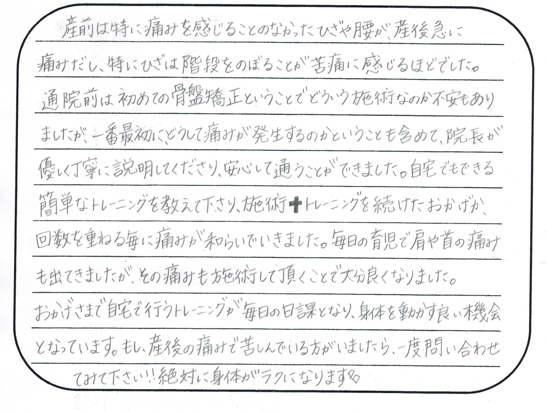 産前は特に痛みを感じることのなかったひざや腰が、産後急に
痛みだし、特にひざは階段をのぼることが苦痛に感じるほどでした。
通院前は初めての骨盤矯正ということでどういう施術なのか不安もあり
ましたが、一番最初に、どうして痛みが発生するのかということも含めて、院長が
優しく丁寧に説明してくださり、安心して通うことができました。自宅でもできる
簡単なトレーニングを教えて下さり、施術+トレーニングを続けたおかげか、
回数を重ねる毎に痛みが和らいでいきました。毎日の育児で肩や首の痛み
も出てきましたが、その痛みも施術して頂くことで大分良くなりました。
おかげさまで自宅で行うトレーニングが毎日の日課となり、身体を動かす良い機会
となっています。もし、産後の痛みで苦しんでいる方がいましたら、一度問い合わせ
てみて下さい!!絶対に身体がラクになります